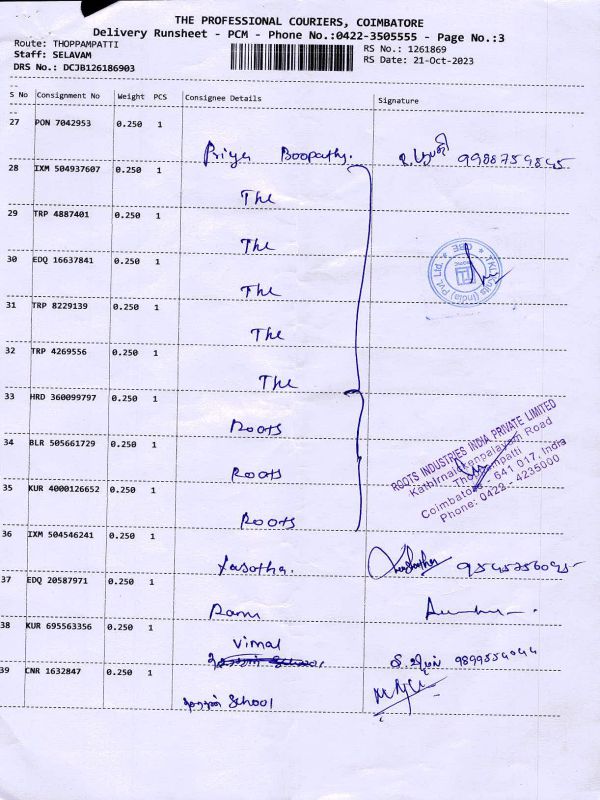 THE PROFESSIONAL COURIERS, COIMBATORE
Delivery Runsheet - PCM - Phone No.:0422-3505555 - Page No.:3
Route: THOPPAMPATTI
Staff: SELAVAM
DRS No.: DCJB126186903
RS No.: 1261869
RS Date: 21-Oct-2023
S No Consignment No Weight PCS Consignee Details Signature
27 PON 7042953 0.250 1
Priya Boopathy.
28 IXM 504937607 0.250 1
The
29 TRP 4887401 0.250 1
The
30 EDQ 16637841 0.250 1
The
31 TRP 8229139 0.250 1
The
32 TRP 4269556 0.250 1
The
33 HRD 360099797 0.250 1
Roots
34 BLR 505661729 0.250 1
Roots
ROOTS INDUSTRIES INDIA PRIVATE LIMITED
Kathirnaickenpalayam Road
Thoppampatti
Coimbatore - 641 017. India
Phone: 0422 - 4235000
35 KUR 4000126652 0.250 1
Roots
36 IXM 504546241 0.250 1
Yasotha.
37 EDQ 20587971 0.250 1
Ramu
38 KUR 695563356 0.250 1
Vimal
39 CNR 1632847 0.250 1
School